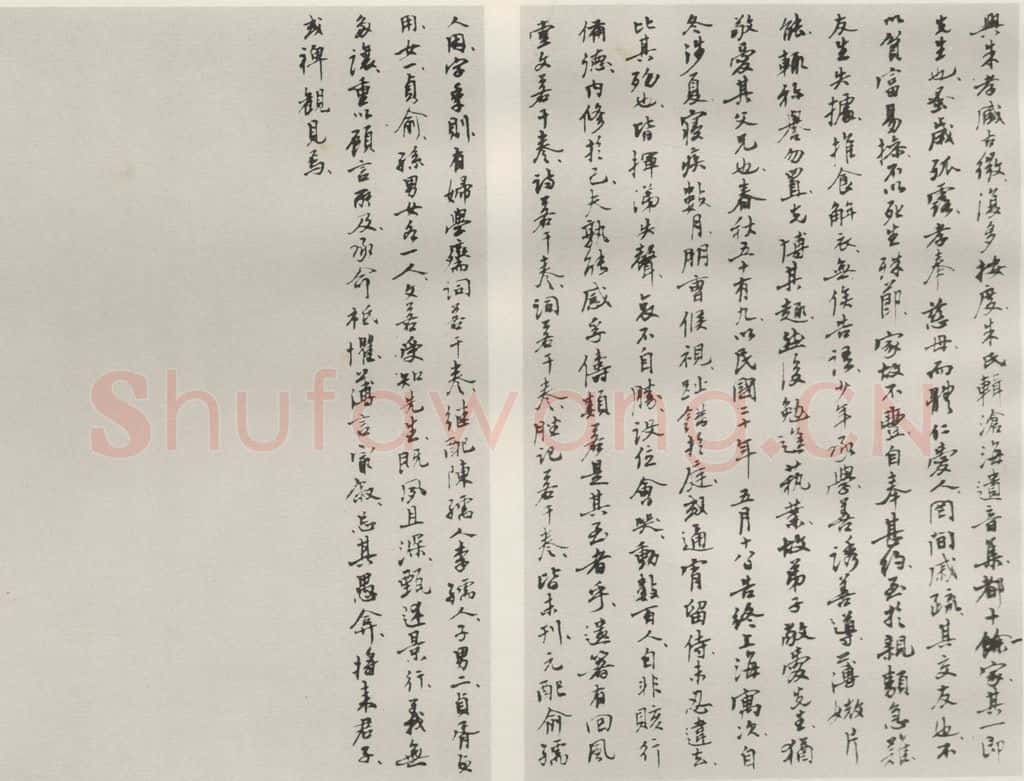 與朱孝臧古微復多按度朱氏輯滄海遺音集都十餘家其一即
先生也蚤歲孤露孝奉慈母而體仁愛人罔間戚疏其交友也不
以貧富易操不以死生殊節家故不豐自奉甚約至於親類急難
友生失據推食解衣無俟告語少年承學善誘善導薄媺片
能輒称譽勿置先博其趣然後勉進藝業故弟子敬愛先生猶
敬愛其父兄也春秋五十有九以民國二十年五月十八日告終上海寓次自
冬涉夏寢疾數月朋曹候視趾錯於庭或通宵留侍未忍違去
比其歿也皆揮涕失聲哀不自勝設位會哭動數百人自非賅行
備德內修於己夫孰能感孚儔類若是其至者乎遺箸有回風
堂文若干卷詩若干卷詞若干卷脞記若干卷皆未刊元配俞孺
人因字季則有婦學齋詞若干卷繼配陳孺人李孺人子男二貞胥貞
用女一貞俞孫男女各一人文若受知先生既夙且深甄述景行義無
多讓重以顧言所及承命祗懼薄言叙忘其愚弇將来君子
或裨觀見焉
Shufawang.CN